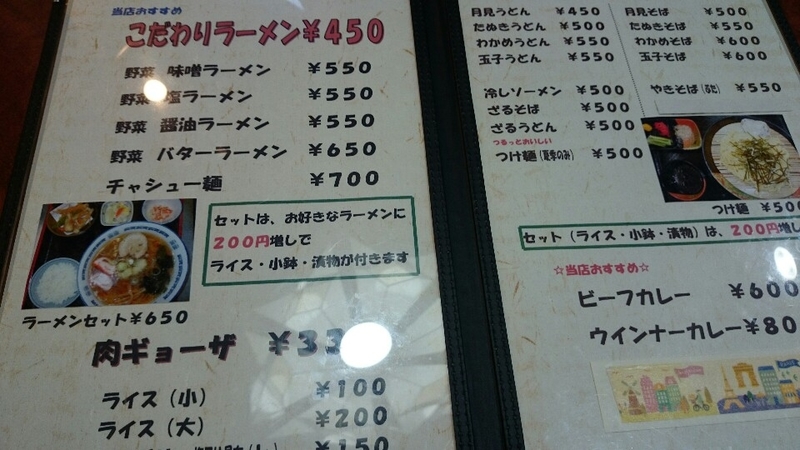 当店おすすめ
こだわりラーメン¥450
野菜 味噌ラーメン ¥550
野菜 塩ラーメン ¥550
野菜 醤油ラーメン ¥550
野菜 バターラーメン ¥650
チャシュー麺 ¥700
セットは、お好きなラーメンに
200円増しで
ライス・小鉢・漬物が付きます
ラーメンセット¥650
肉ギョーザ ¥33
ライス(小) ¥100
ライス(大) ¥200
¥150
月見うどん ¥450
たぬきうどん ¥500
わかめうどん ¥550
玉子うどん ¥550
冷しソーメン ¥500
ざるそば ¥500
ざるうどん ¥500
つるっとおいしい
つけ麺(夏季のみ) ¥500
月見そば ¥500
たぬきそば ¥550
わかめそば ¥600
玉子そば ¥600
やきそば ¥550
つけ麺 ¥500
セット(ライス・小鉢・漬物)は、200円増し
☆当店おすすめ☆
ビーフカレー ¥600
ウインナーカレー¥80